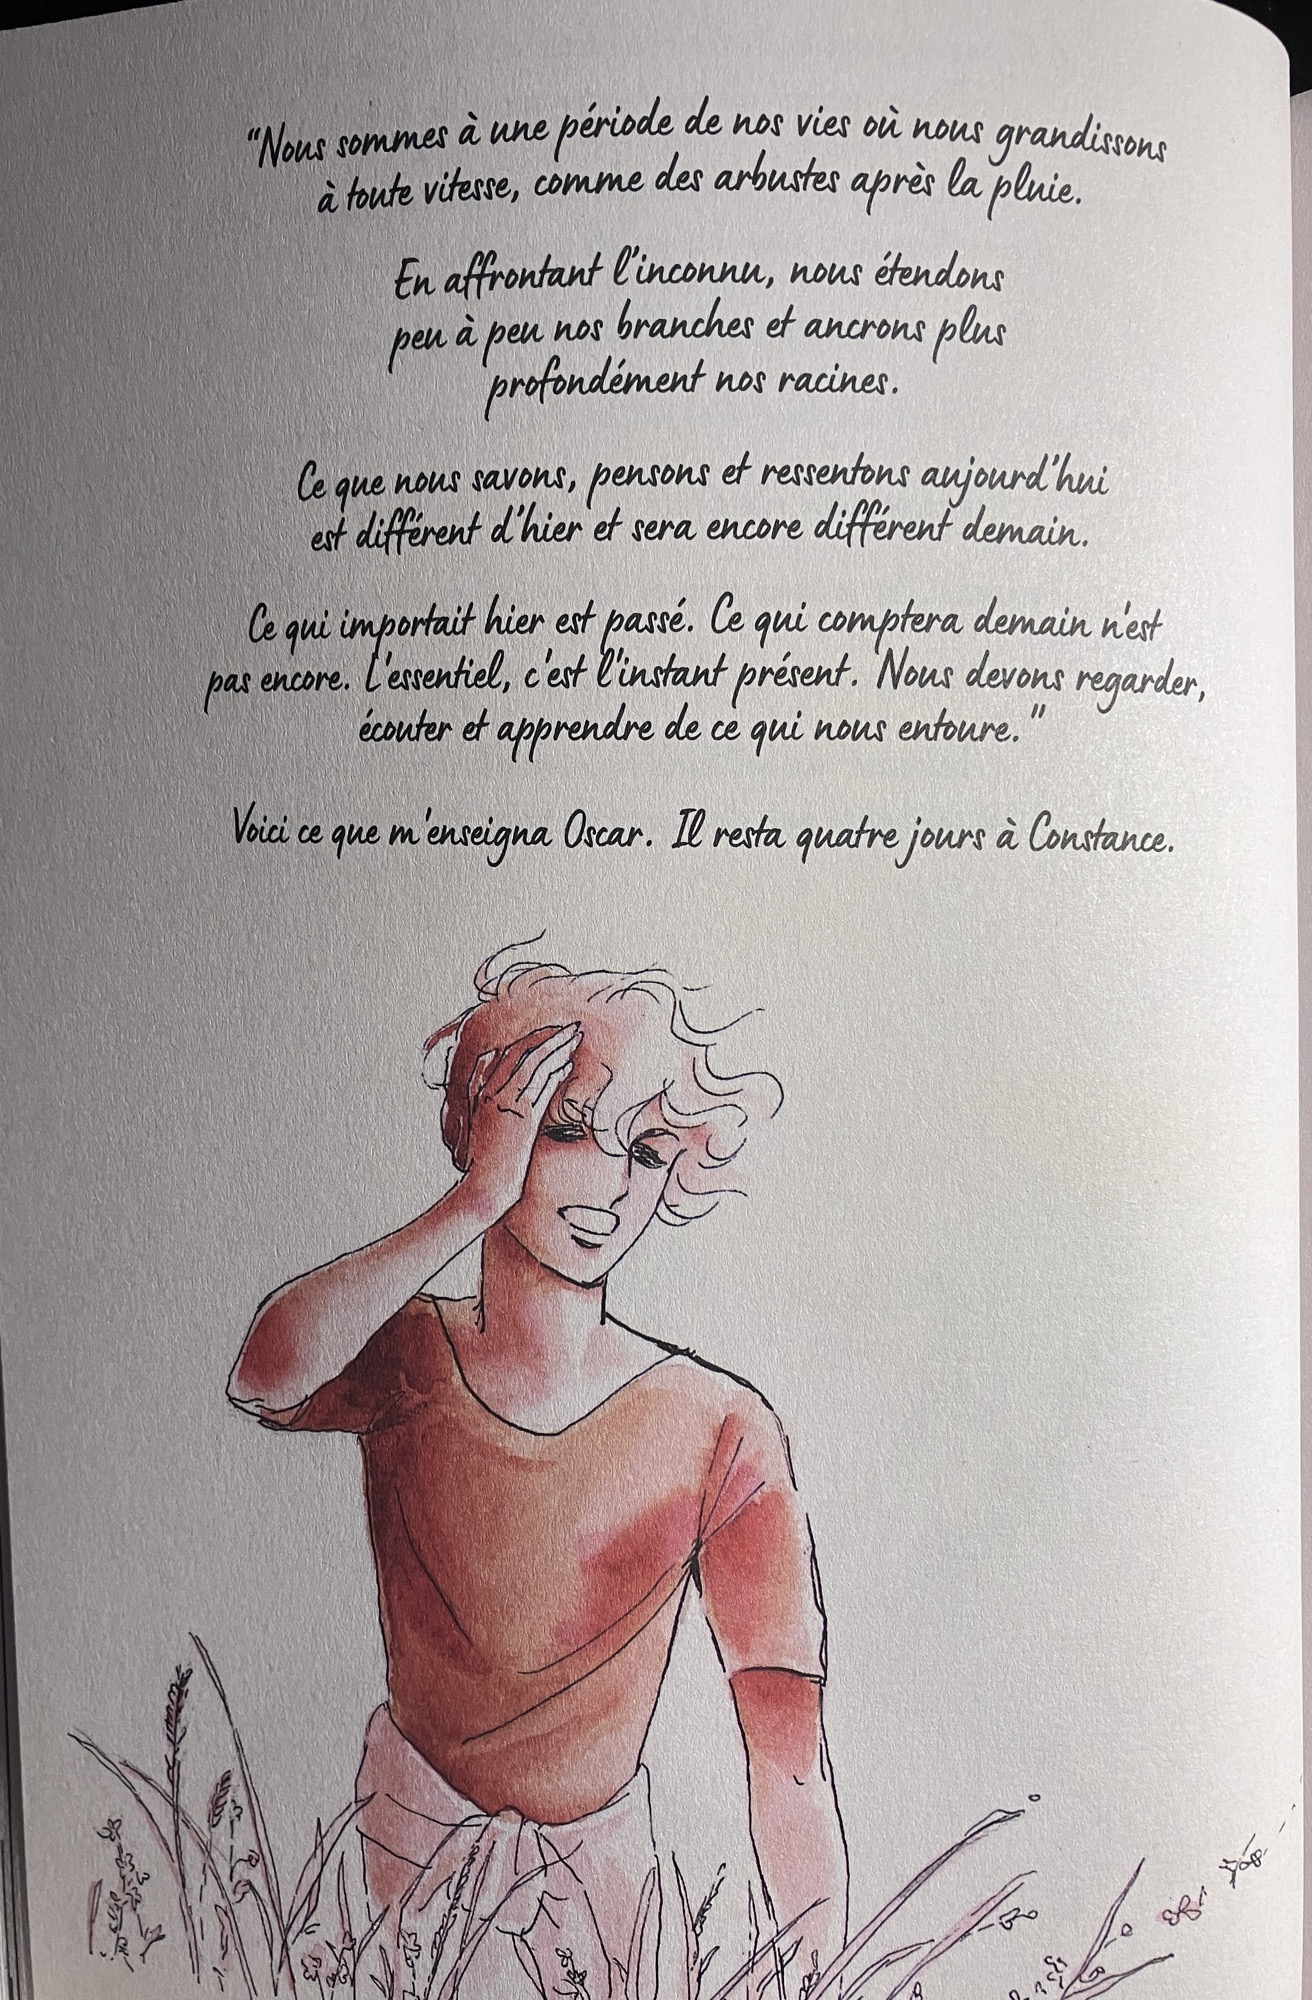 “Nous sommes à une période de nos vies où nous grandissons
à toute vitesse, comme des arbustes après la pluie.
En affrontant l'inconnu, nous étendons
peu à peu nos branches et ancrons plus
profondément nos racines.
Ce que nous savons, pensons et ressentons aujourd'hui
est différent d'hier et sera encore différent demain.
Ce qui importait hier est passé. Ce qui comptera demain n'est
pas encore. L'essentiel, c'est l'instant présent. Nous devons regarder,
écouter et apprendre de ce qui nous entoure.”
Voici ce que m'enseigna Oscar. Il resta quatre jours à Constance.